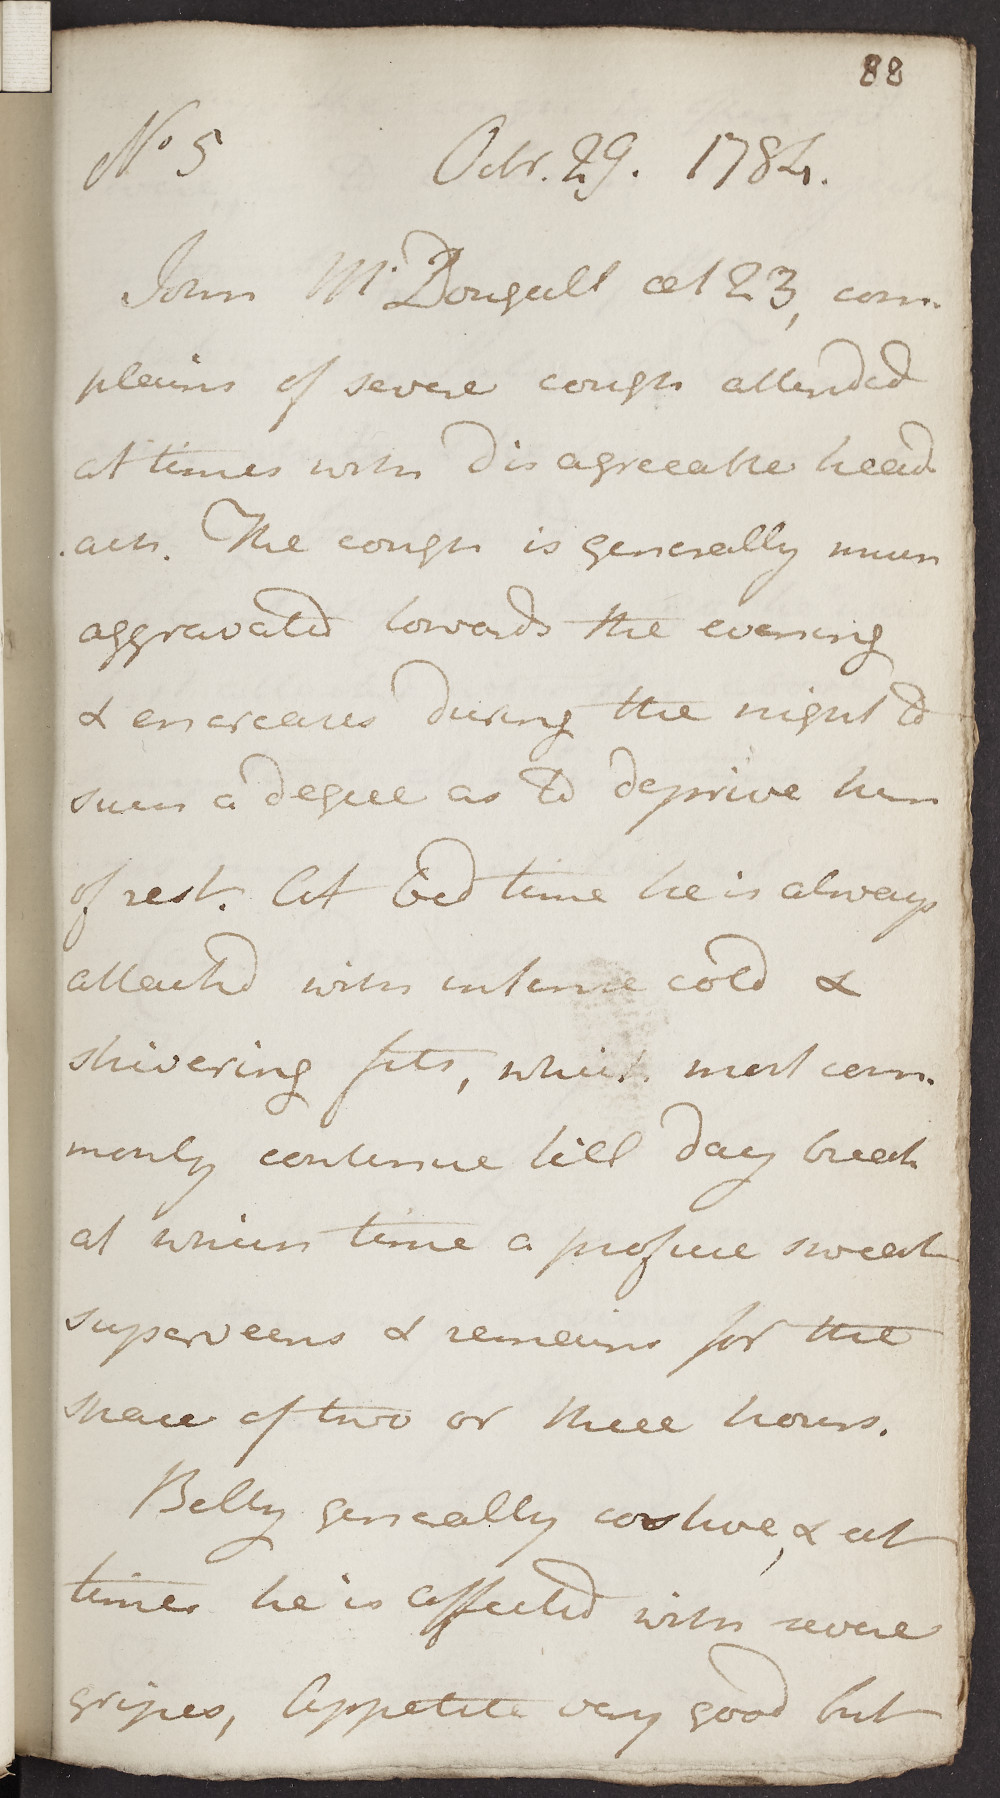 88
No 5 Octr. 29. 1784.
John Mc Dougall aet 23, com-
plains of severe cough attended
at times with disagreeable head
-ach. The cough is generally much
aggravated towards the evening
& encreases during the night to
such a degree as to deprive him
of rest. At Bed time he is always
attacked with intense cold &
shivering fits, which most com-
monly continue till day break
at which time a profuse sweat
superveens & remains for the
space of two or three hours.
Belly generally costive, & at
times he is affected with severe
gripes, Appetite very good but